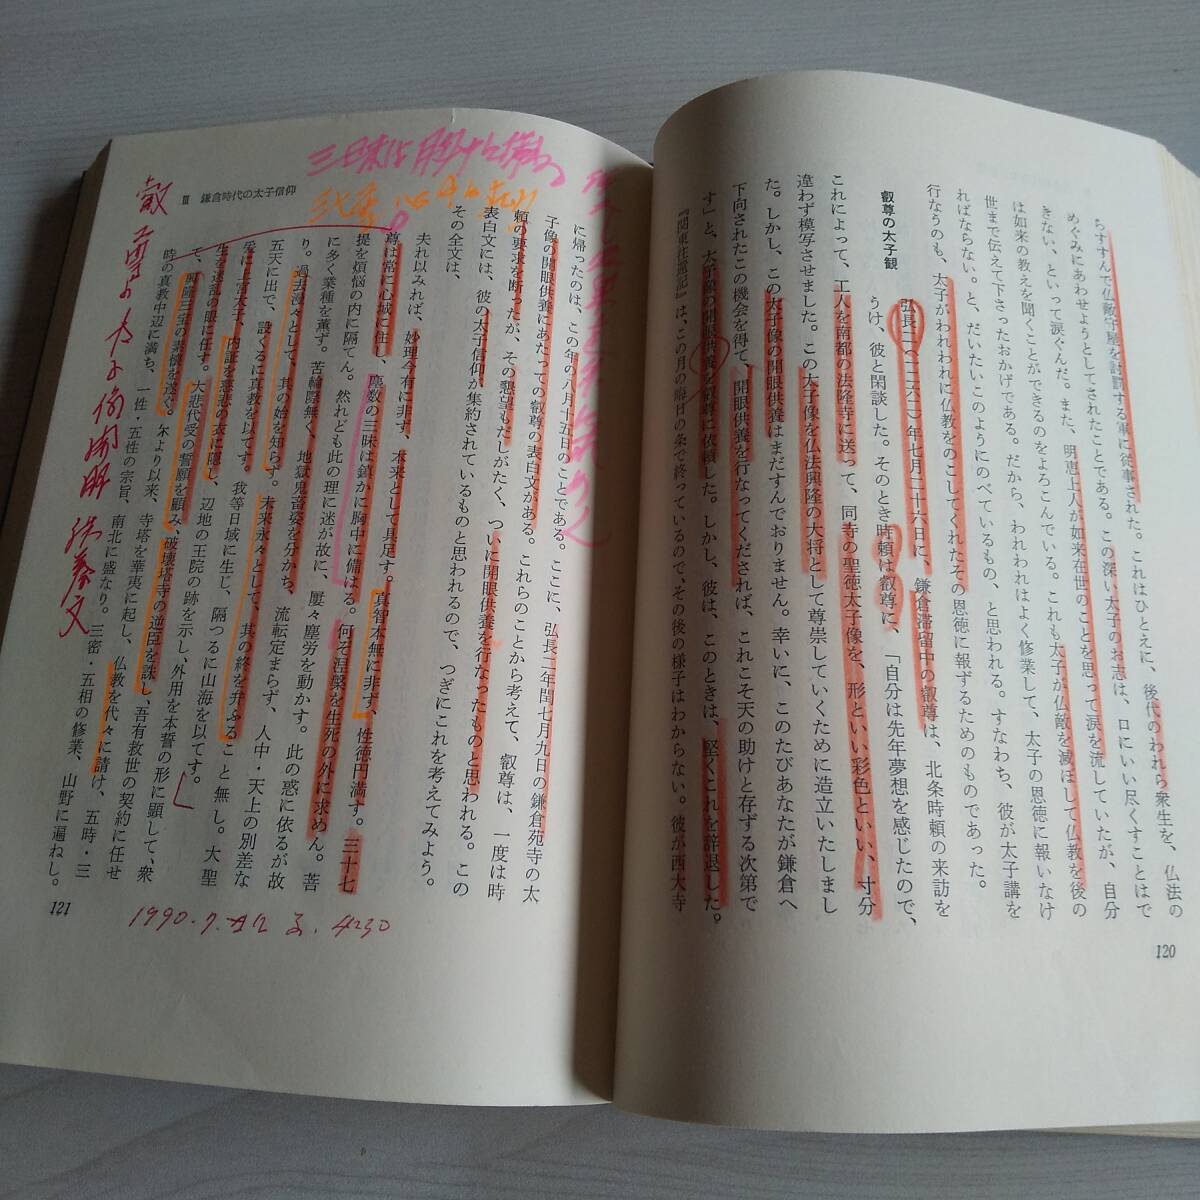 ちすすんで仏敵守屋を討罰する軍に従事された。これはひとえに、後代のわれら衆生を、仏法の
めぐみにあわせようとしてされたことである。この深い太子のお志は、口にいい尽くすことはで
きない、といって涙ぐんだ。また、明恵上人が如来在世のことを思って涙を流していたが、自分
は如来の教えを聞くことができるのをよろこんでいる。これも太子が仏敵を滅ぼして仏教を後の
世まで伝えて下さったおかげである。だから、われわれはよく修業して、太子の恩徳に報いなけ
ればならない。と、だいたいこのようにのべているもの、と思われる。すなわち、彼が太子講を
行なうのも、太子がわれわれに仏教をのこしてくれたその恩徳に報ずるためのものであった。
叡尊の太子観
弘長二(一二六二)年七月二十六日に、鎌倉滞留中の叡尊は、北条時頼の来訪を
うけ、彼と閑談した。そのとき時頼は叡尊に、「自分は先年夢想を感じたので、
これによって、工人を南都の法隆寺に送って、同寺の聖徳太子像を、形といい彩色といい、寸分
違わず模写させました。この太子像を仏法興隆の大将として尊崇していくために造立いたしまし
た。しかし、この太子像の開眼供養はまだすんでおりません。幸いに、このたびあなたが鎌倉へ
下向されたこの機会を得て、開眼供養を行なってくだされば、これこそ天の助けと存ずる次第で
す」と、太子像の開眼供養を叡尊に依頼した。しかし、彼は、このときは、堅くこれを辞退した。
『関東往還記』は、この月の晦日の条で終っているので、その後の様子はわからない。彼が西大寺
120
Ⅲ 鎌倉時代の太子信仰
に帰ったのは、この年の八月十五日のことである。ここに、弘長二年閏七月九日の鎌倉苑寺の太
子像の開眼供養にあたっての叡尊の表白文がある。これらのことから考えて、叡尊は、一度は時
頼の要求を断ったが、その懇望もだしがたく、ついに開眼供養を行なったものと思われる。この
表白文には、彼の太子信仰が集約されているものと思われるので、つぎにこれを考えてみよう。
その全文は、
夫れ以みれば、妙理今有に非ず、本来として具足す。真智本無に非ず、性徳円満す。三十七
尊は常に心城に住し、塵数の三昧は鎮かに胸中に備はる。何ぞ涅槃を生死の外に求めん。菩
提を煩悩の内に隔てん。然れども此の理に迷が故に、屢々塵労を動かす。此の惑に依るが故
に多く業種を薫ず。苦輪際無く、地獄鬼畜姿を分かち、流転定まらず、人中・天上の別差な
り。過去漫々として、其の始を知らず。未来永々として、其の終を弁ふること無し。大聖
五天に出で、設くるに真教を以てす。我等日域に生じ、隔つるに山海を以てす。
爰に上宮太子、内証を慈悲の衣に隠し、辺地の王院の跡を示し、外用を本誓の形に顕して、衆
生を遠邦の眼に任す。大悲代受の誓願を顧み、破壊塔寺の逆臣を誅し、吾有救世の契約に任せ
て、興隆三宝の素懐を遂ぐ。尓より以来、寺塔を華夷に起し、仏教を代々に請け、五時・三
時の真教中辺に満ち、一性・五性の宗旨、南北に盛なり。三密・五相の修業、山野に遍ねし。
121
三昧は胸中に備わる